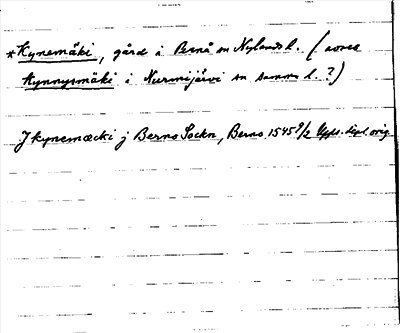 *Kynemäki, gård i Pernå sn Nylands l. (avser
Kynnysmäki i Nurmijärvi sn samma l.?)
J kynemæcki j Berno Sockn, Berno 1545 9/2 Upps. dipl. orig.